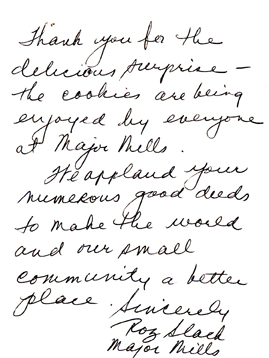 Thank you for the
delicious surprise –
the cookies are being
enjoyed by everyone
at Major Mills.
We applaud your
numerous good deeds
to make the world
and our small
community a better
place. Sincerely
Roz Slach
Major Mills